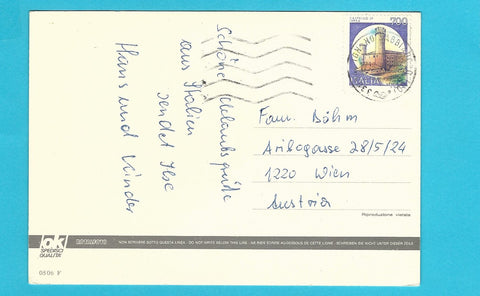 Schöne Urlaubsgrüße
aus Italien
sendet Ilse
Hans und Kinder
700
ITALIA
Fam. Böhm
Aribogasse 28/5/24
1220 Wien
Austria
Riproduzione vietata
ok
SPEDISCI
QUALITA'
NON SCRIVERE SOTTO QUESTA LINEA - DO NOT WRITE BELOW THIS LINE - NE RIEN ECRIRE AU-DESSOUS DE CETTE LIGNE - SCHREIBEN SIE NICHT UNTER DIESER ZEILE
0506 F